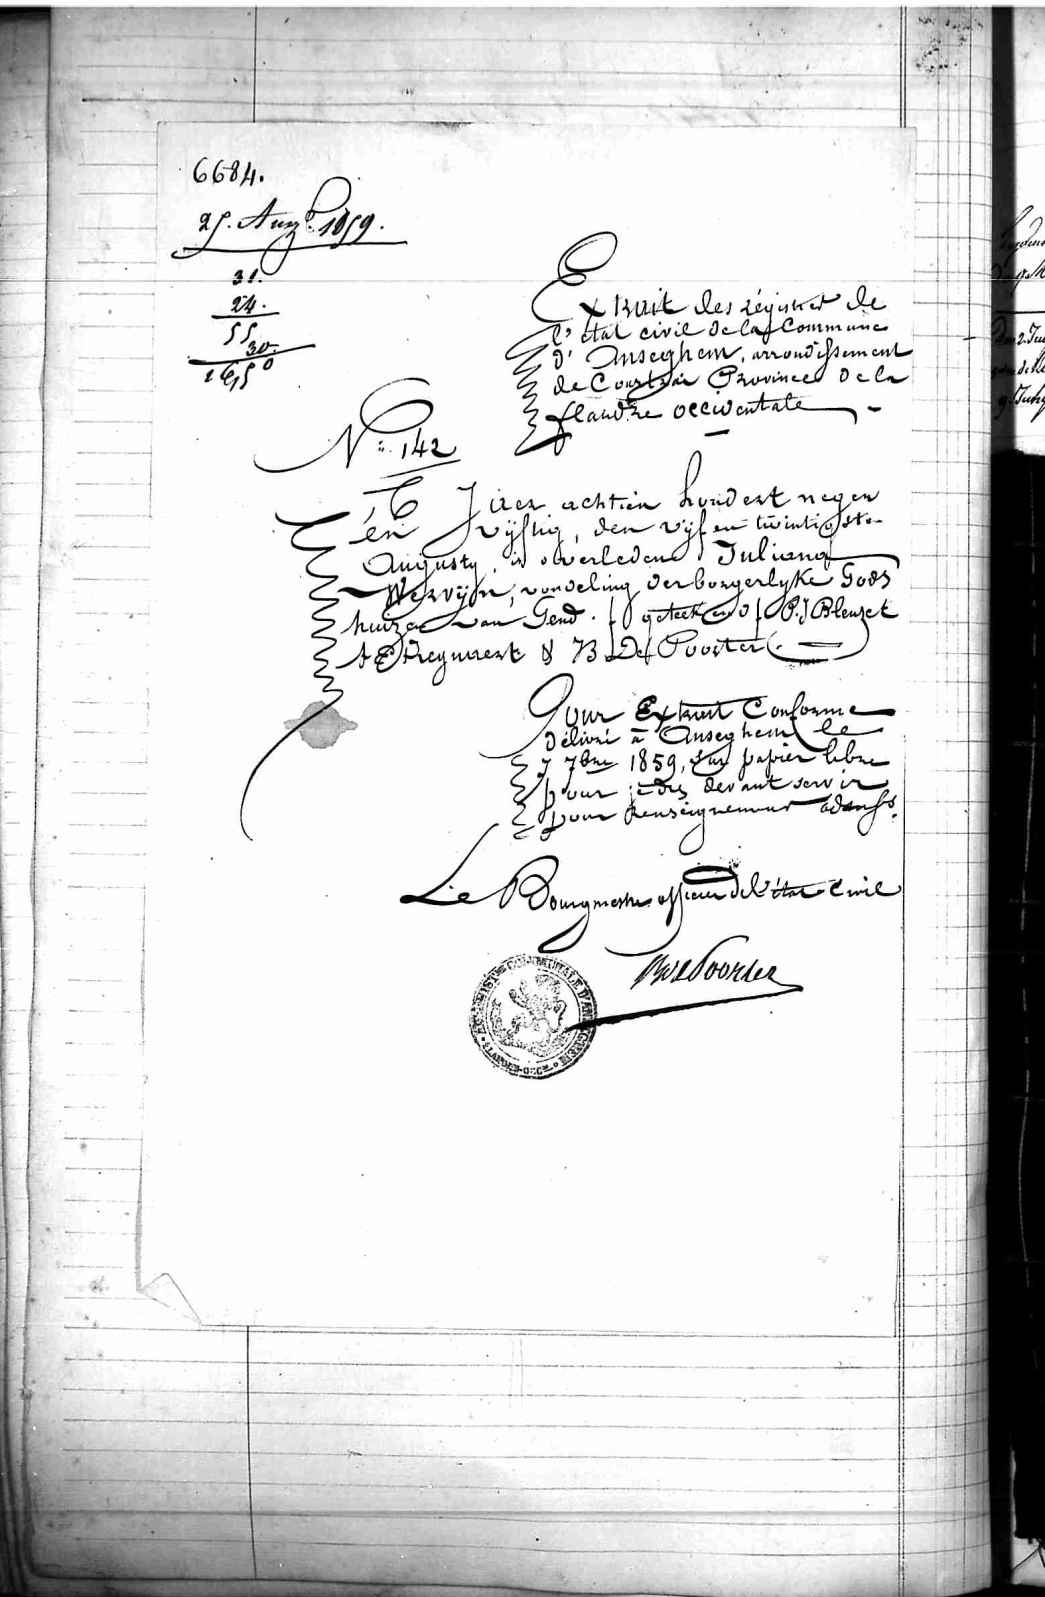 6684.
25. Augt. 1859.
31.
24.
55
30.
1650
Extrait des régistres de
l'état civil de la Commune
d'Anseghem, arrondissement
de Courtrai Province de la
flandre occidentale
No. 142
T Jaer achtien hondert negen
en vijftig, den vijf en twintigste
Augusty, is overleden Juliana
Wervijn, vondeling der borgerlyke Gods
huizen van Gend. (geteekend) P.J Bleuzet
Reynaert & B De Poorter.
Pour Extrait Conforme
délivré à Anseghem le
7 7bre 1859, sur papier libre
pour devant servir
pour Renseignement
Le Bourgmestre officier de l'état Civil
B De Poorter
COMMUNALE D'ANSEGHEM
FLANDRE OCC.